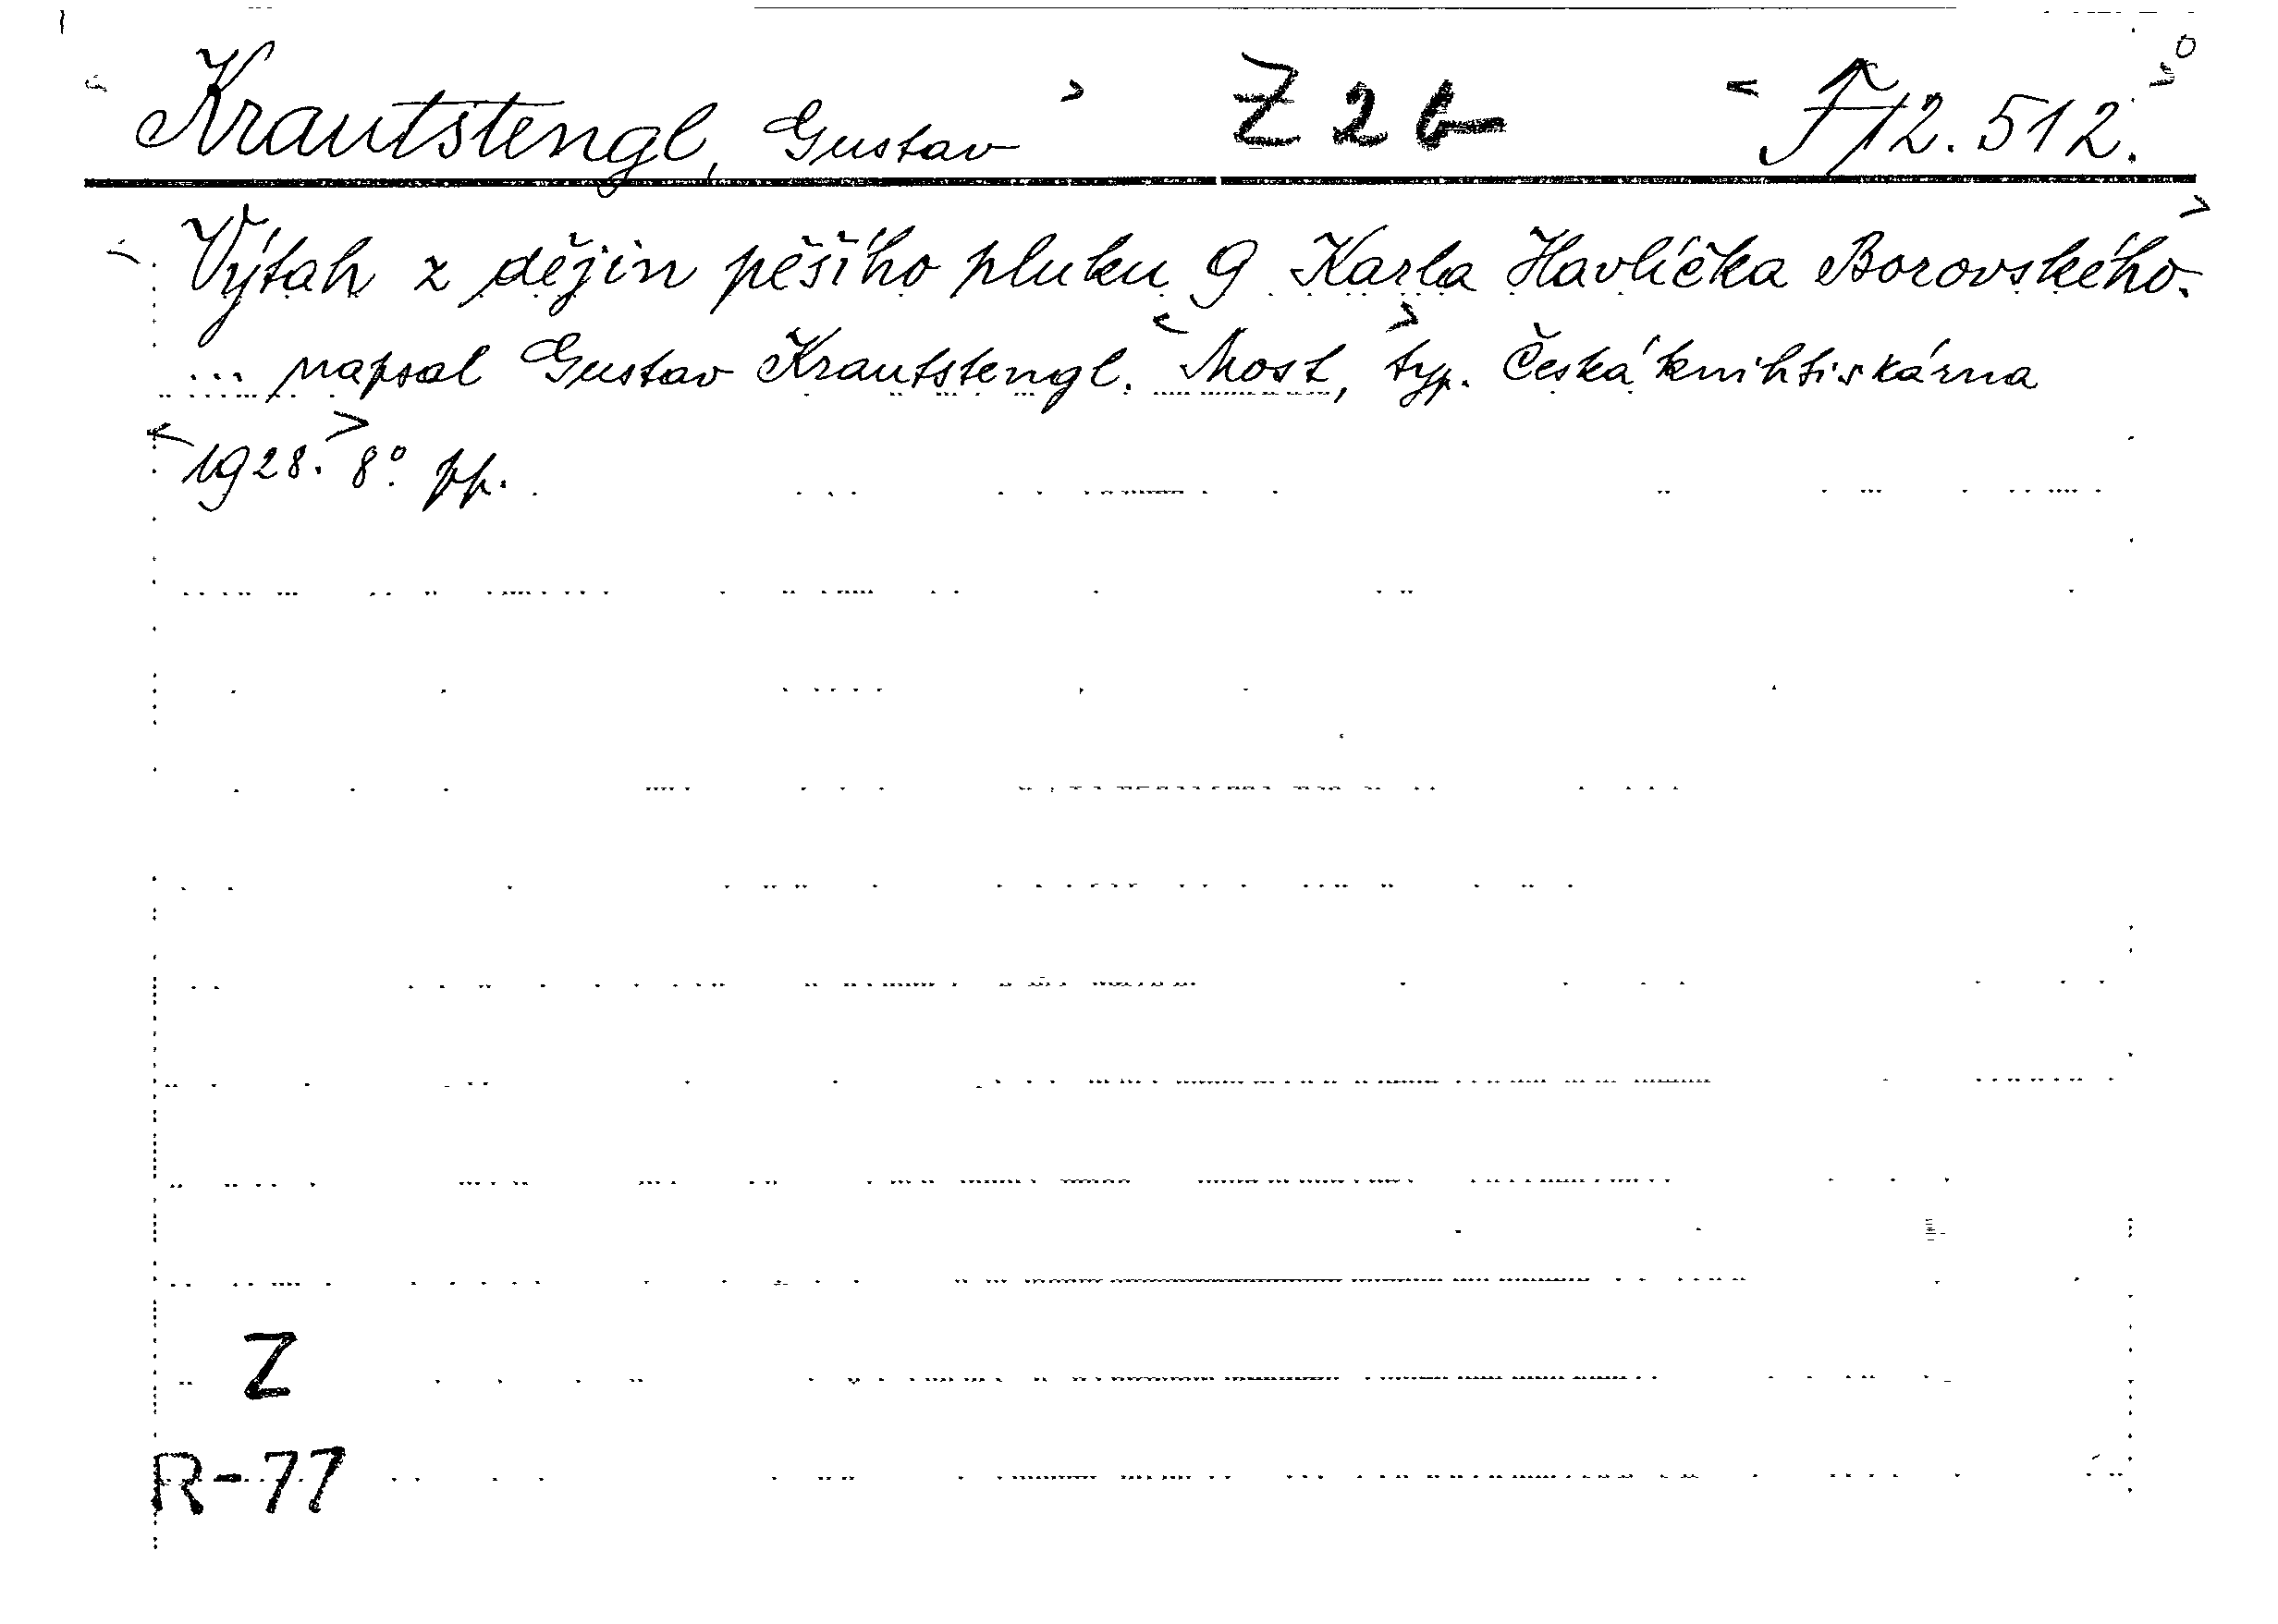 Krautstengl, Gustav Z 2 b F 12.512.
Výtah z dějin pěšího pluku 9 Karla Havlíčka Borovského.
... napsal Gustav Krautstengl. Most, typ. Česká knihtiskárna
1928. 8° pp.
Z
R-77